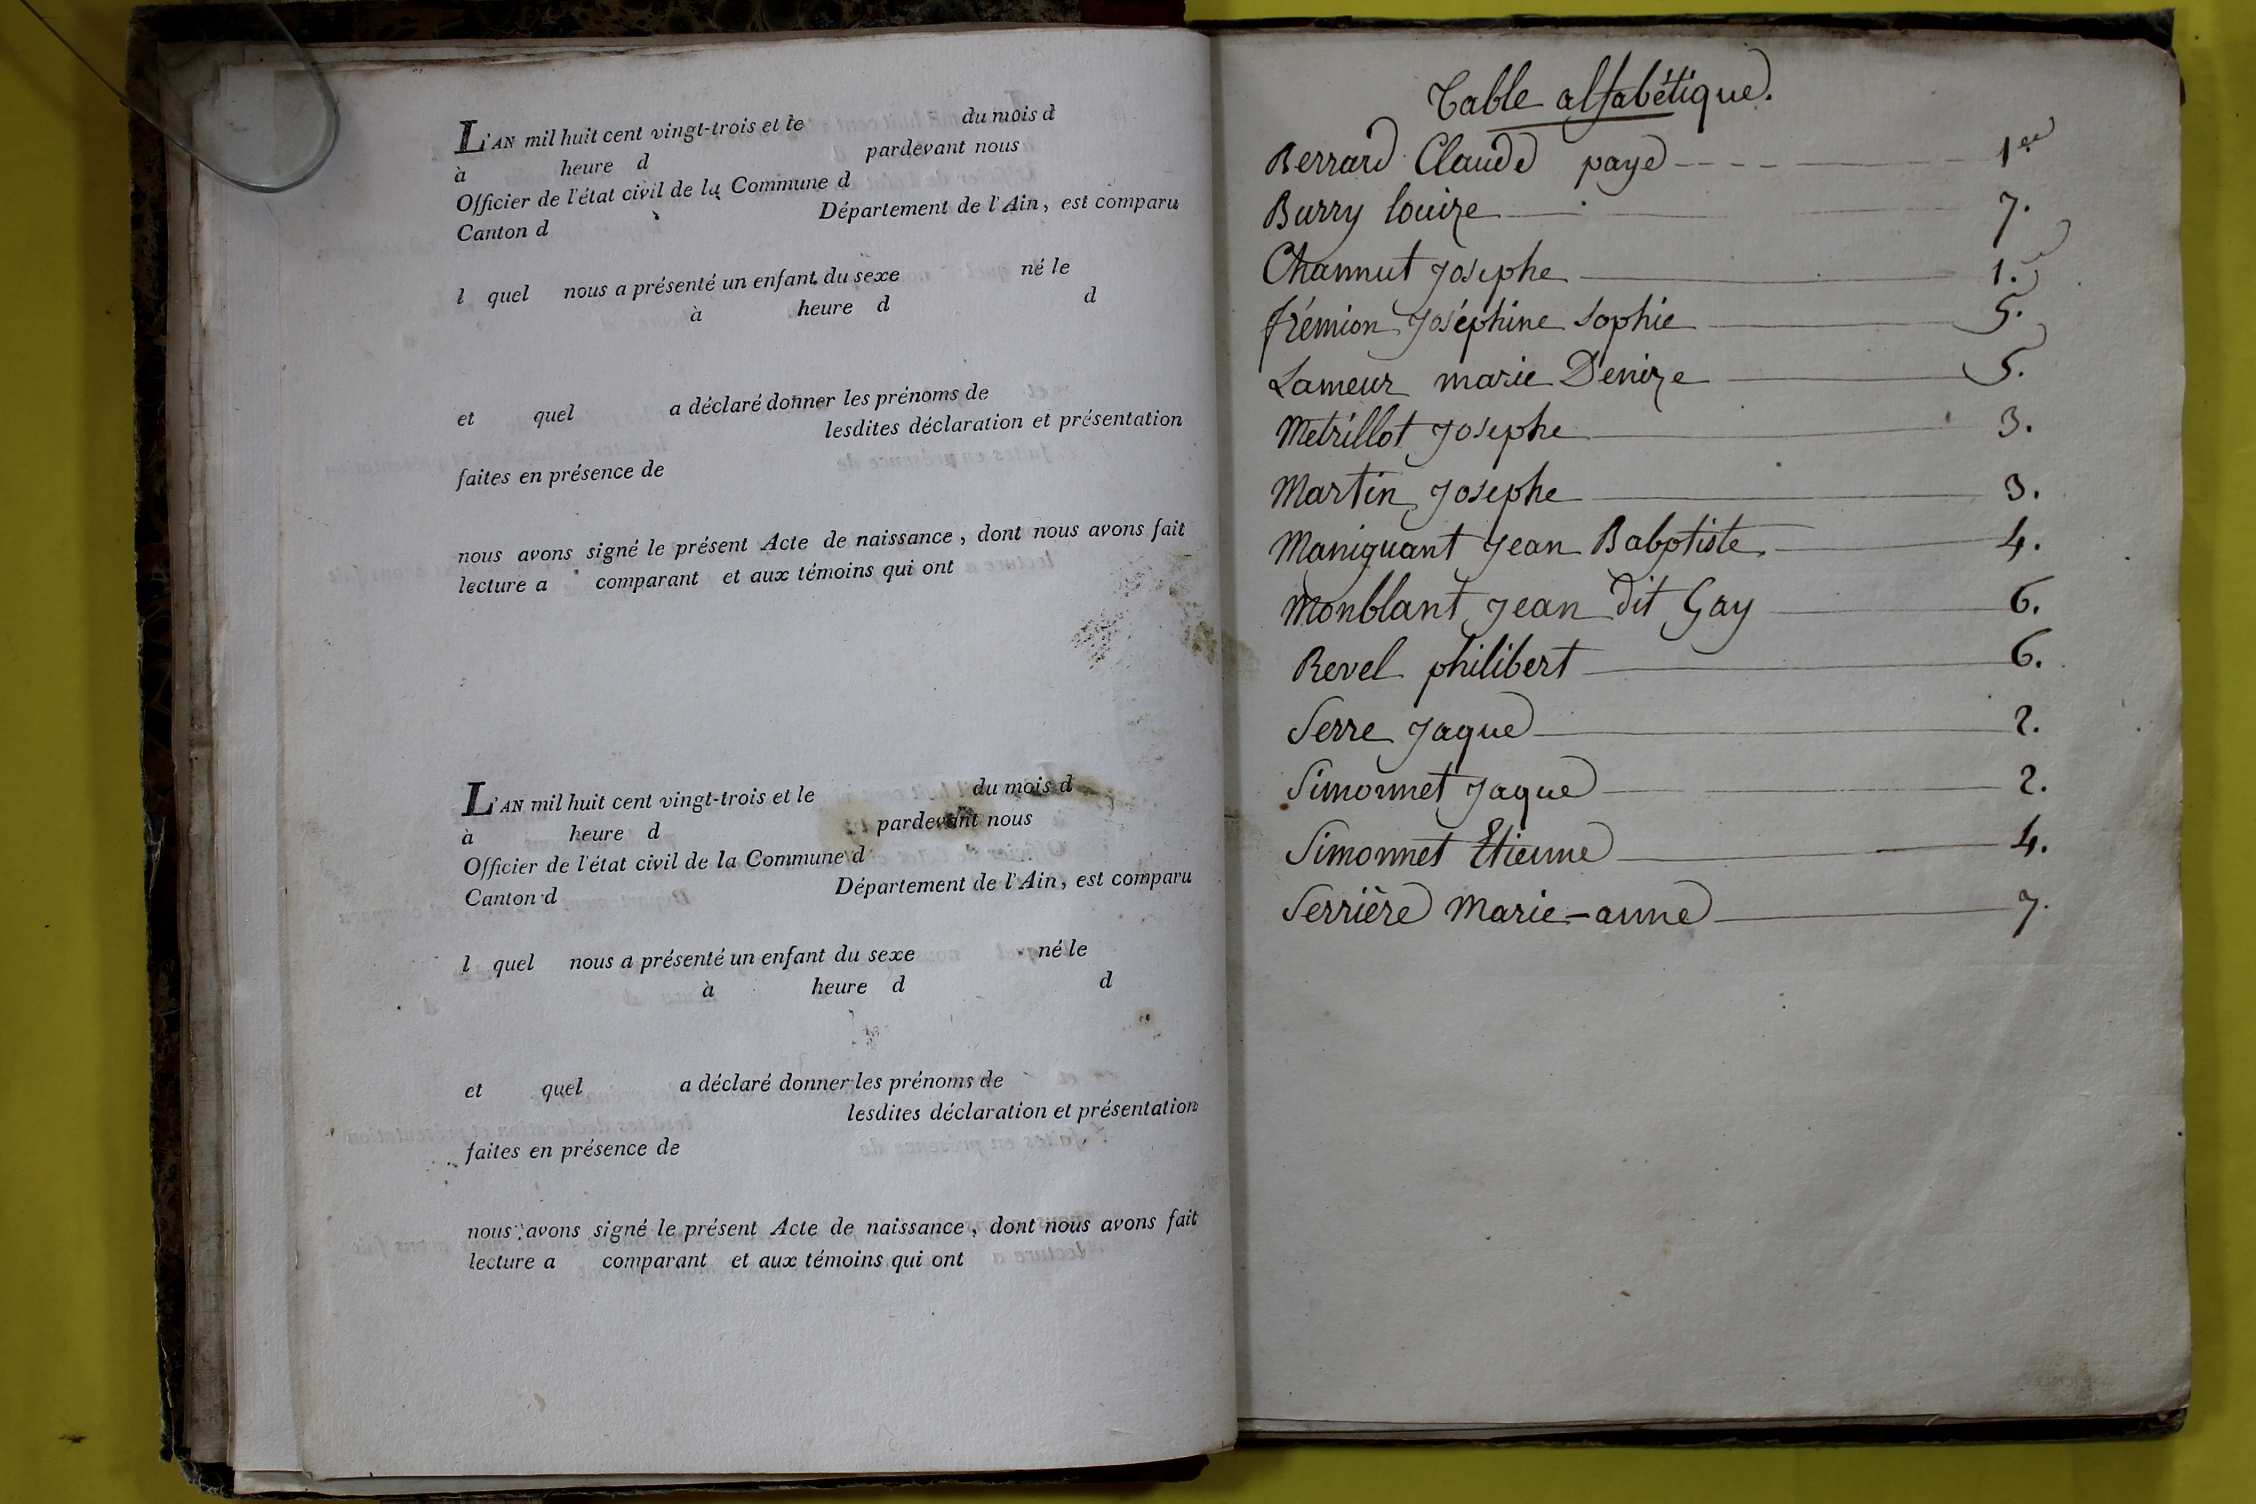 L'AN mil huit cent vingt-trois et le du mois d
à heure d pardevant nous
Officier de l'état civil de la Commune d
Canton d Département de l'Ain, est comparu
l quel nous a présenté un enfant du sexe né le
à heure d d
et quel a déclaré donner les prénoms de
lesdites déclaration et présentation
faites en présence de
nous avons signé le présent Acte de naissance, dont nous avons fait
lecture a comparant et aux témoins qui ont
L'AN mil huit cent vingt-trois et le du mois d
à heure d pardevant nous
Officier de l'état civil de la Commune d
Canton d Département de l'Ain, est comparu
l quel nous a présenté un enfant du sexe né le
à heure d d
et quel a déclaré donner les prénoms de
lesdites déclaration et présentation
faites en présence de
nous avons signé le présent Acte de naissance, dont nous avons fait
lecture a comparant et aux témoins qui ont
Table alfabétique.
Berrard Claude page 1ere
Burry louize 7.
Channut Josephe 1.
frémion Joséphine Sophie 5.
Lameur marie Denize 5.
Metrillot Josephe 3.
Martin Josephe 3.
Maniquant Jean Babptiste 4.
Monblant Jean dit Gay 6.
Revel philibert 6.
Serre Jaque 2.
Simonnet Jaque 2.
Simonnet Etienne 4.
Serrière Marie-anne 7.